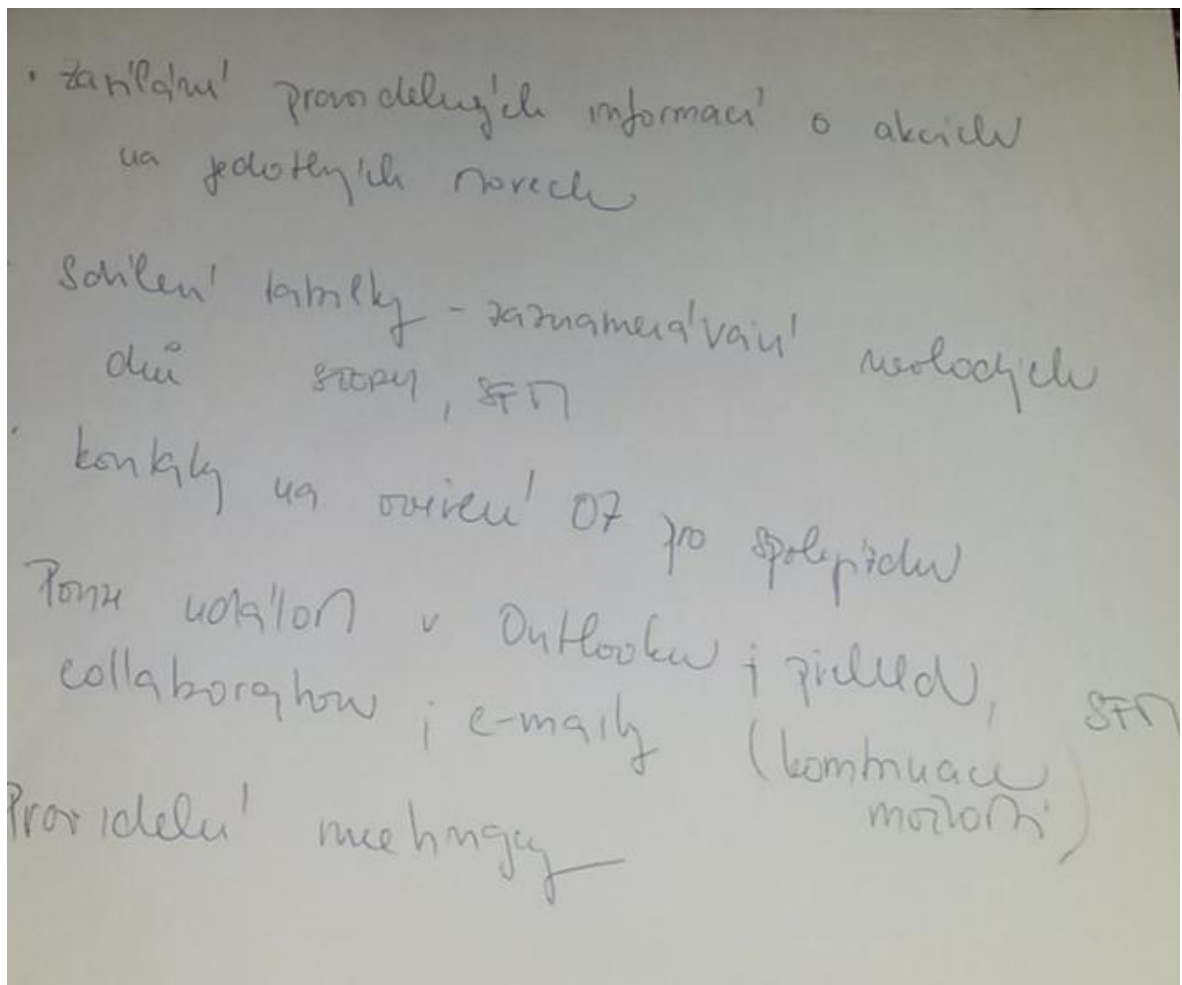 • zasílání pravidelných informací o akcích
na jednotlivých
Sdílení tabulky - zaznamenávání nevhodných
dnů STOPY, SFM
kontakty na ověření 07 pro
událost v Outlooku ; přehled, SFM
collaboration ; e-maily (kombinace
možností)
Pravidelné meetingy